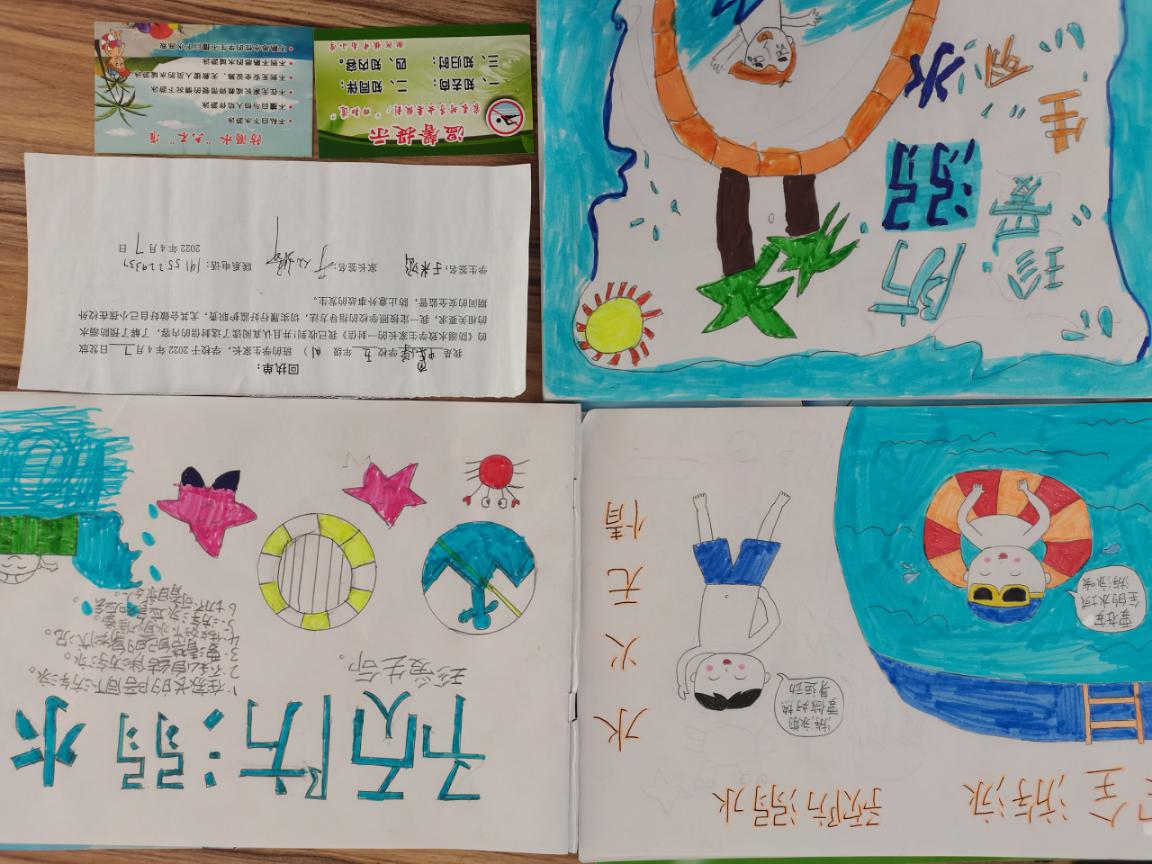 安全游泳
预防溺水
要在安
全的水域
游泳哦
游泳前
要做好热
身运动
水火无情
预防溺水
珍爱生命。
1.在家长的陪同下游泳
2.不私自结伴游泳。
3.要清楚自己的身体状况。
防溺水
珍爱生命
回执单：
我是 学校 五 年级 班的学生家长，学校于 2022 年 4 月 7 日发放
的《防溺水致学生家长的一封信》我已收到并且认真阅读了这封信的内容，了解了预防溺水
的相关要求，我一定按照学校的指导方法，切实履行好监护职责，尤其会做好自己小孩在校外
期间的安全监管，防止意外事故的发生。
学生签名： 家长签名： 联系电话：19155229337
2022 年 4 月 7 日
温馨提示
家长对子女要做到：“四知道”
一、知去向； 二、知同伴；
三、知归时； 四、知内容。
防溺水“六不”准
不私自下水游泳
不擅自与他人结伴游泳
不在无家长或教师带领的情况下游泳
不到无安全设施、无救援人员的水域游泳
不到不熟悉的水域游泳
不熟悉水性的学生不擅自下水施救